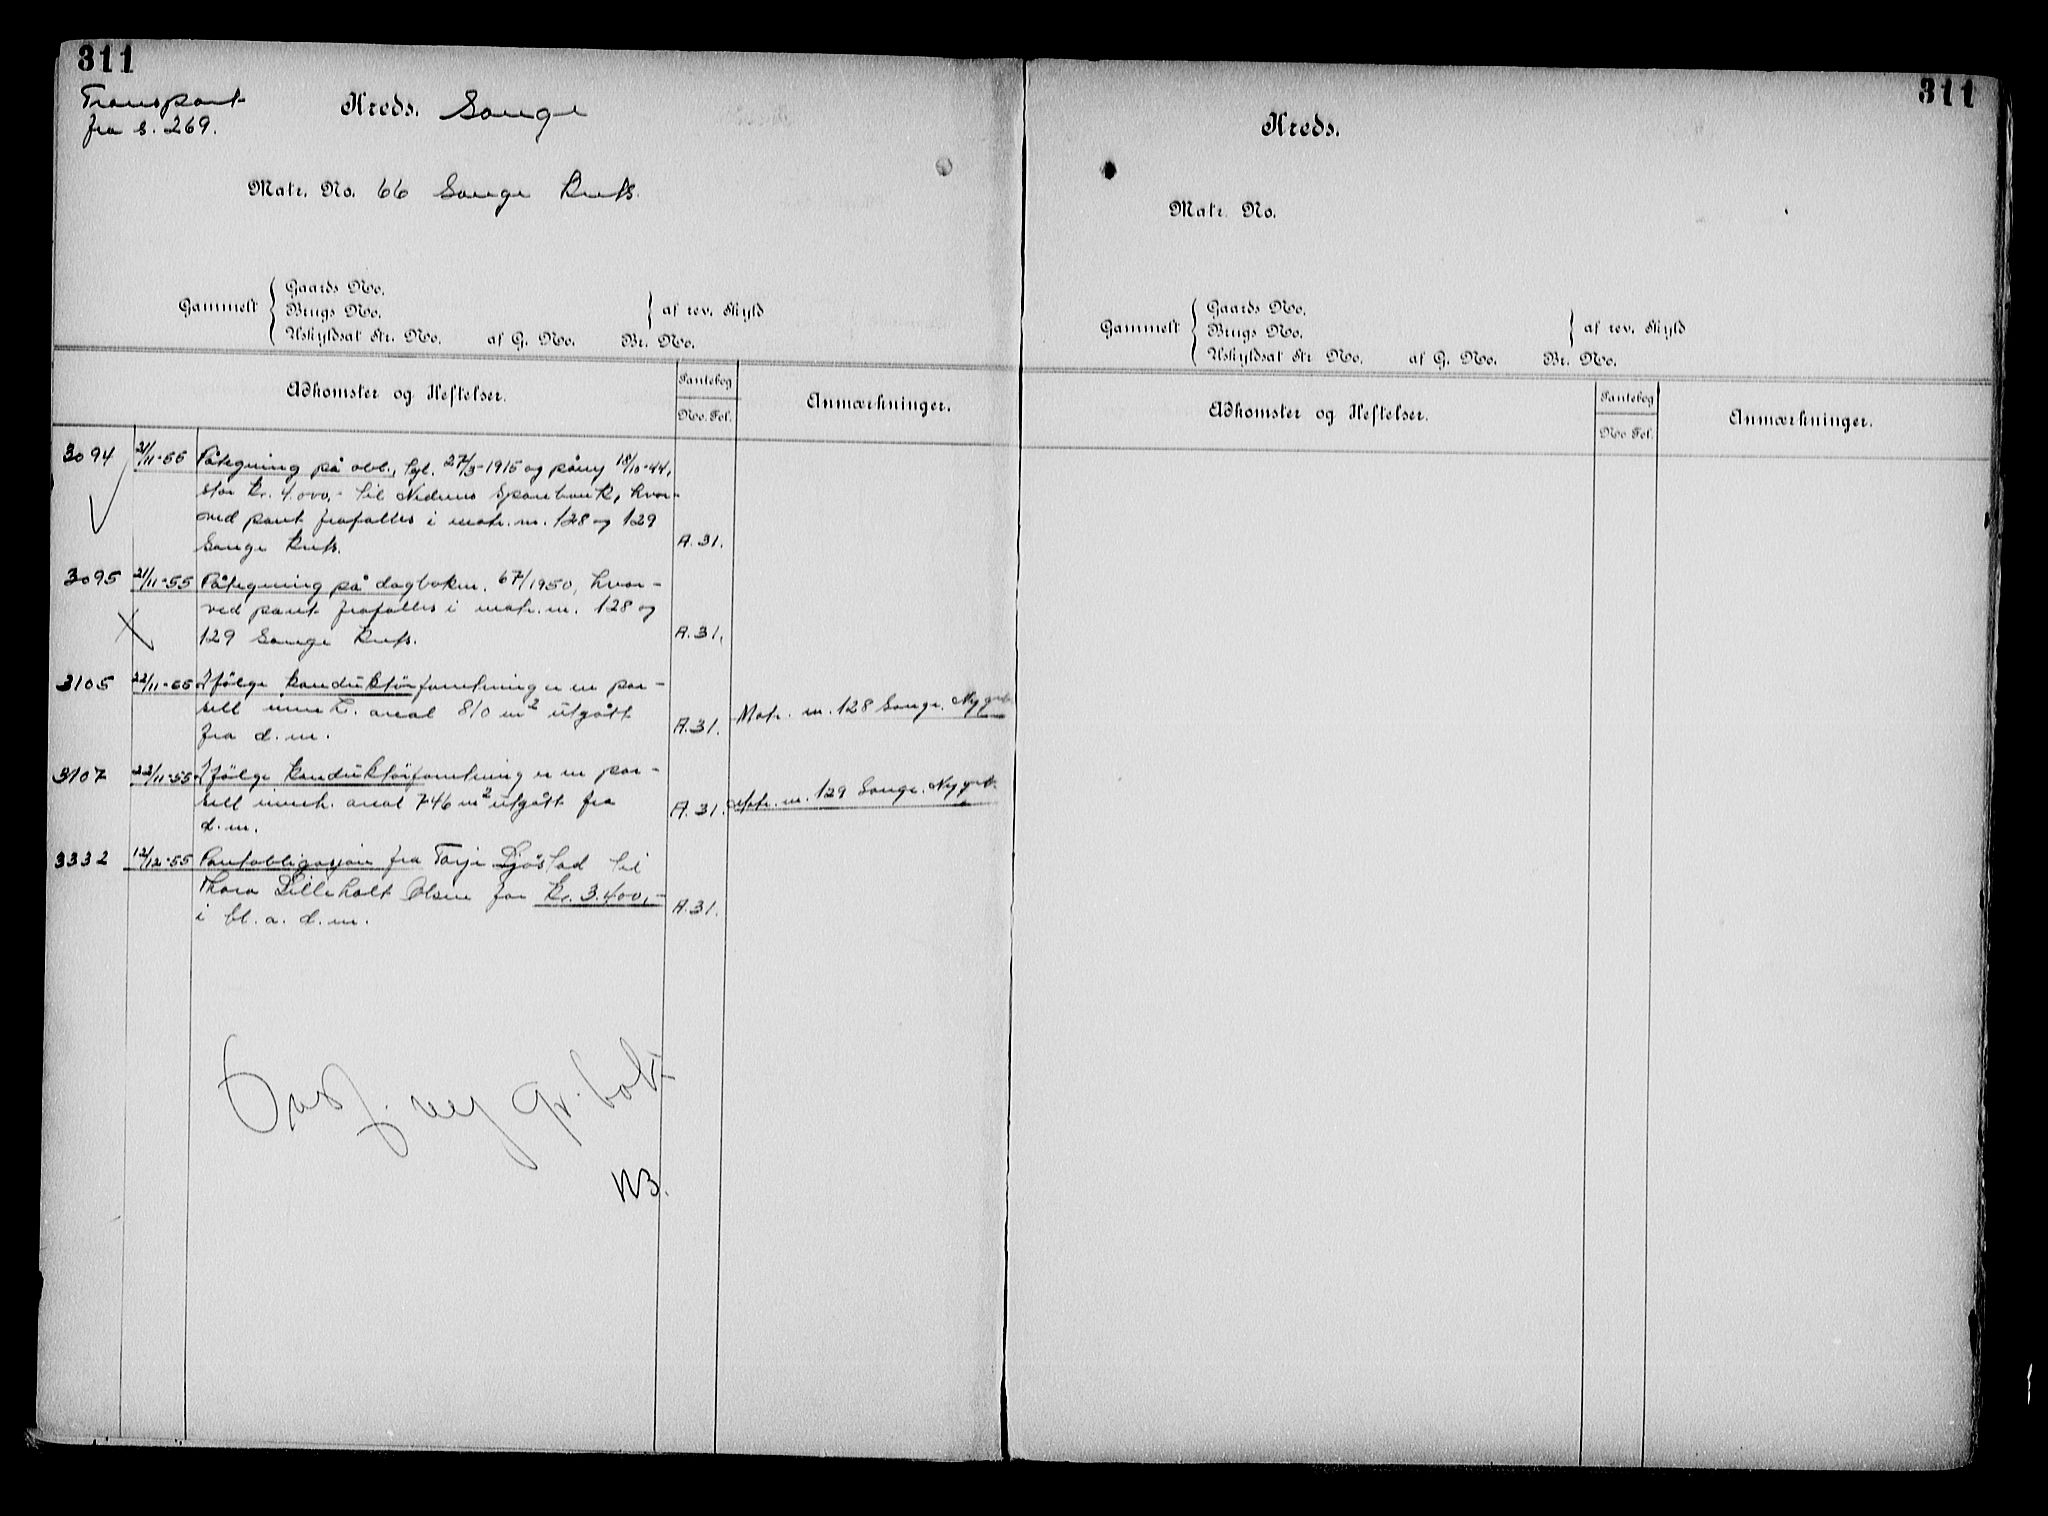 311
Transport
fra s. 269.
Kreds. Songe
Matr. No. 66 Songe
Gammelt
Gaards No.
Brugs No.
Uskyldsat Str. No. af G. No. Br. No.
af rev. Skyld
Adkomster og Heftelser.
Pantebog
No. Fol.
Anmærkninger.
3094 21/11-55 Påtegning på obl., tgl. 27/3-1915 og påny 18/10-44,
stor kr. 4.000,- til Nedenes Sparebank, hvor-
ved pant frafalles i matr. nr. 128 og 129
Songe A.31.
3095 21/11-55 Påtegning på dagboknr. 67/1950, hvor-
ved pant frafalles i matr. nr. 128 og
129 Songe A.31.
3105 22/11-55 Ifølge konduktørforretning er en par-
sell areal 810 m2 utgått
fra d. m. A.31. Matr. nr. 128 Songe.
3107 22/11-55 Ifølge konduktørforretning er en par-
sell areal 746 m2 utgått fra
d. m. A.31. Matr. nr. 129 Songe.
3332 12/12-55 Pantobligasjon fra Tarje til
Thora Lilleholt Olsen for kr. 3.400,-
i bl. a. d. m. A.31.
Overf. ny gr. bok
NB.
311
Kreds.
Matr. No.
Gammelt
Gaards No.
Brugs No.
Uskyldsat Str. No. af G. No. Br. No.
af rev. Skyld
Adkomster og Heftelser.
Pantebog
No. Fol.
Anmærkninger.